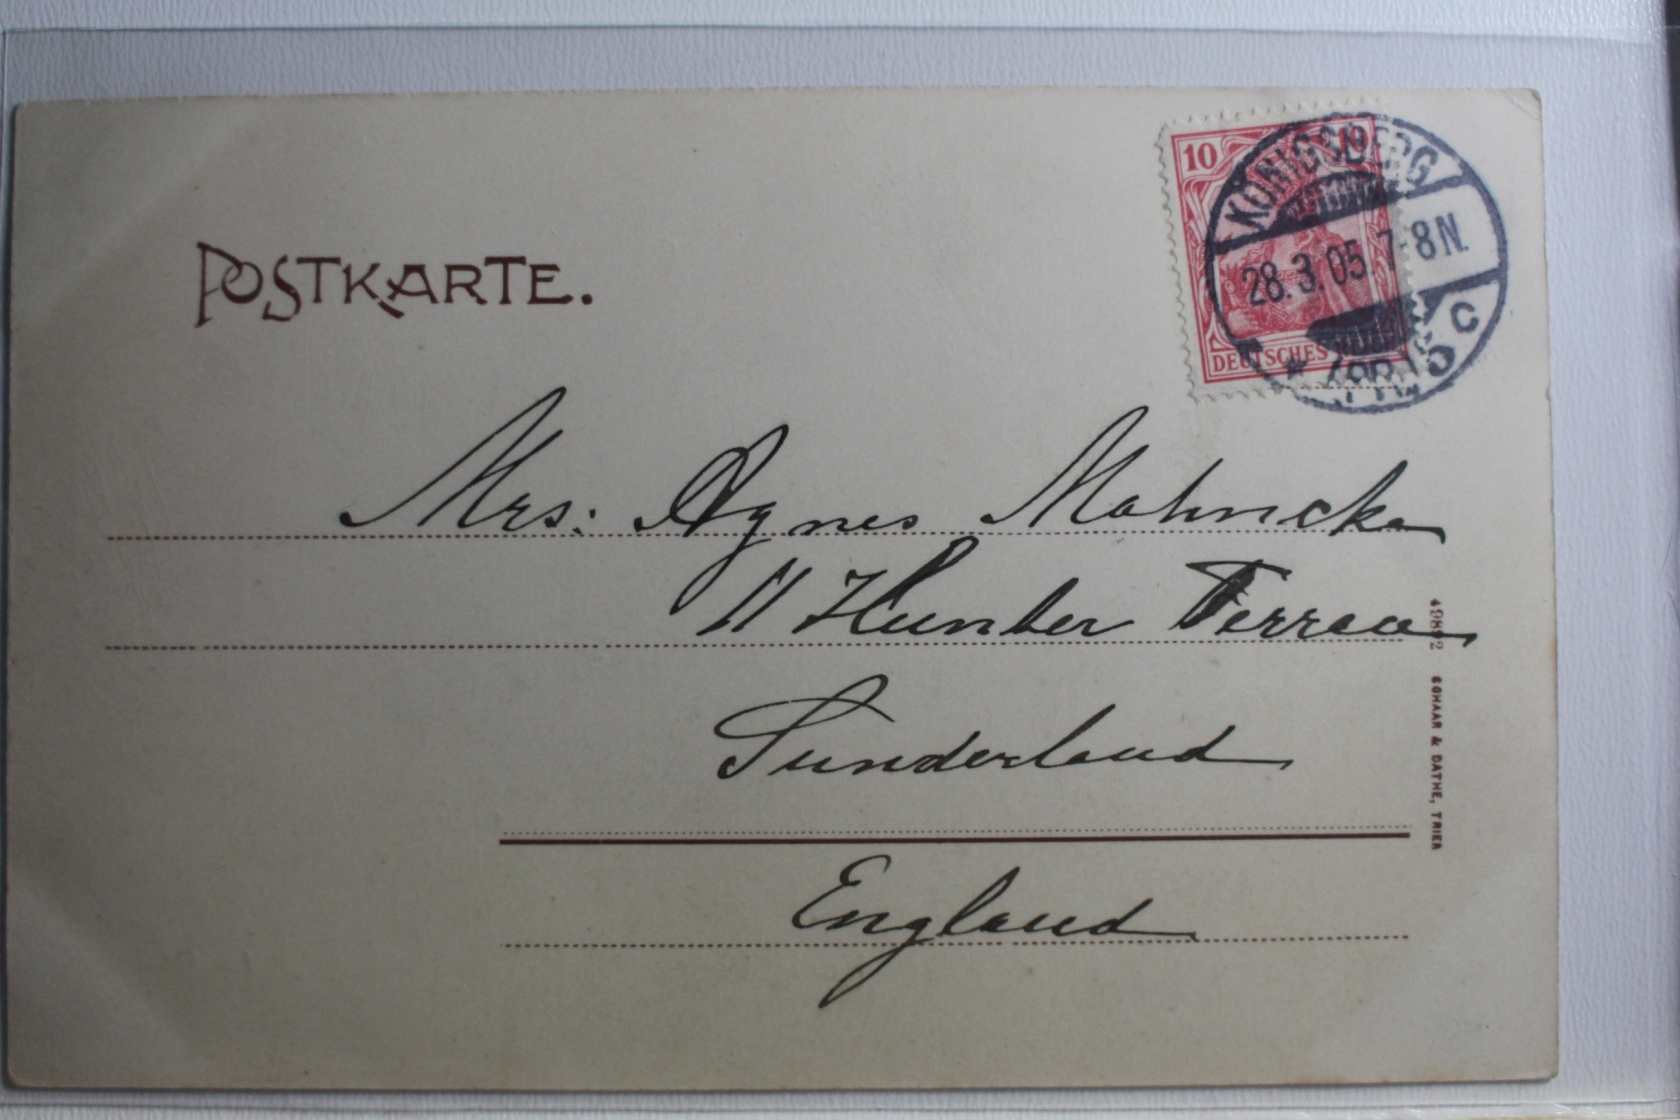 POSTKARTE.
10 10
KÖNIGSBERG
28.3.05 7-8N.
* (PR.) 5 c
DEUTSCHES
Mrs: Agnes Mahncke
11 Hunter Terrace
Sunderland
England
SCHAAR & DATHE, TRIER